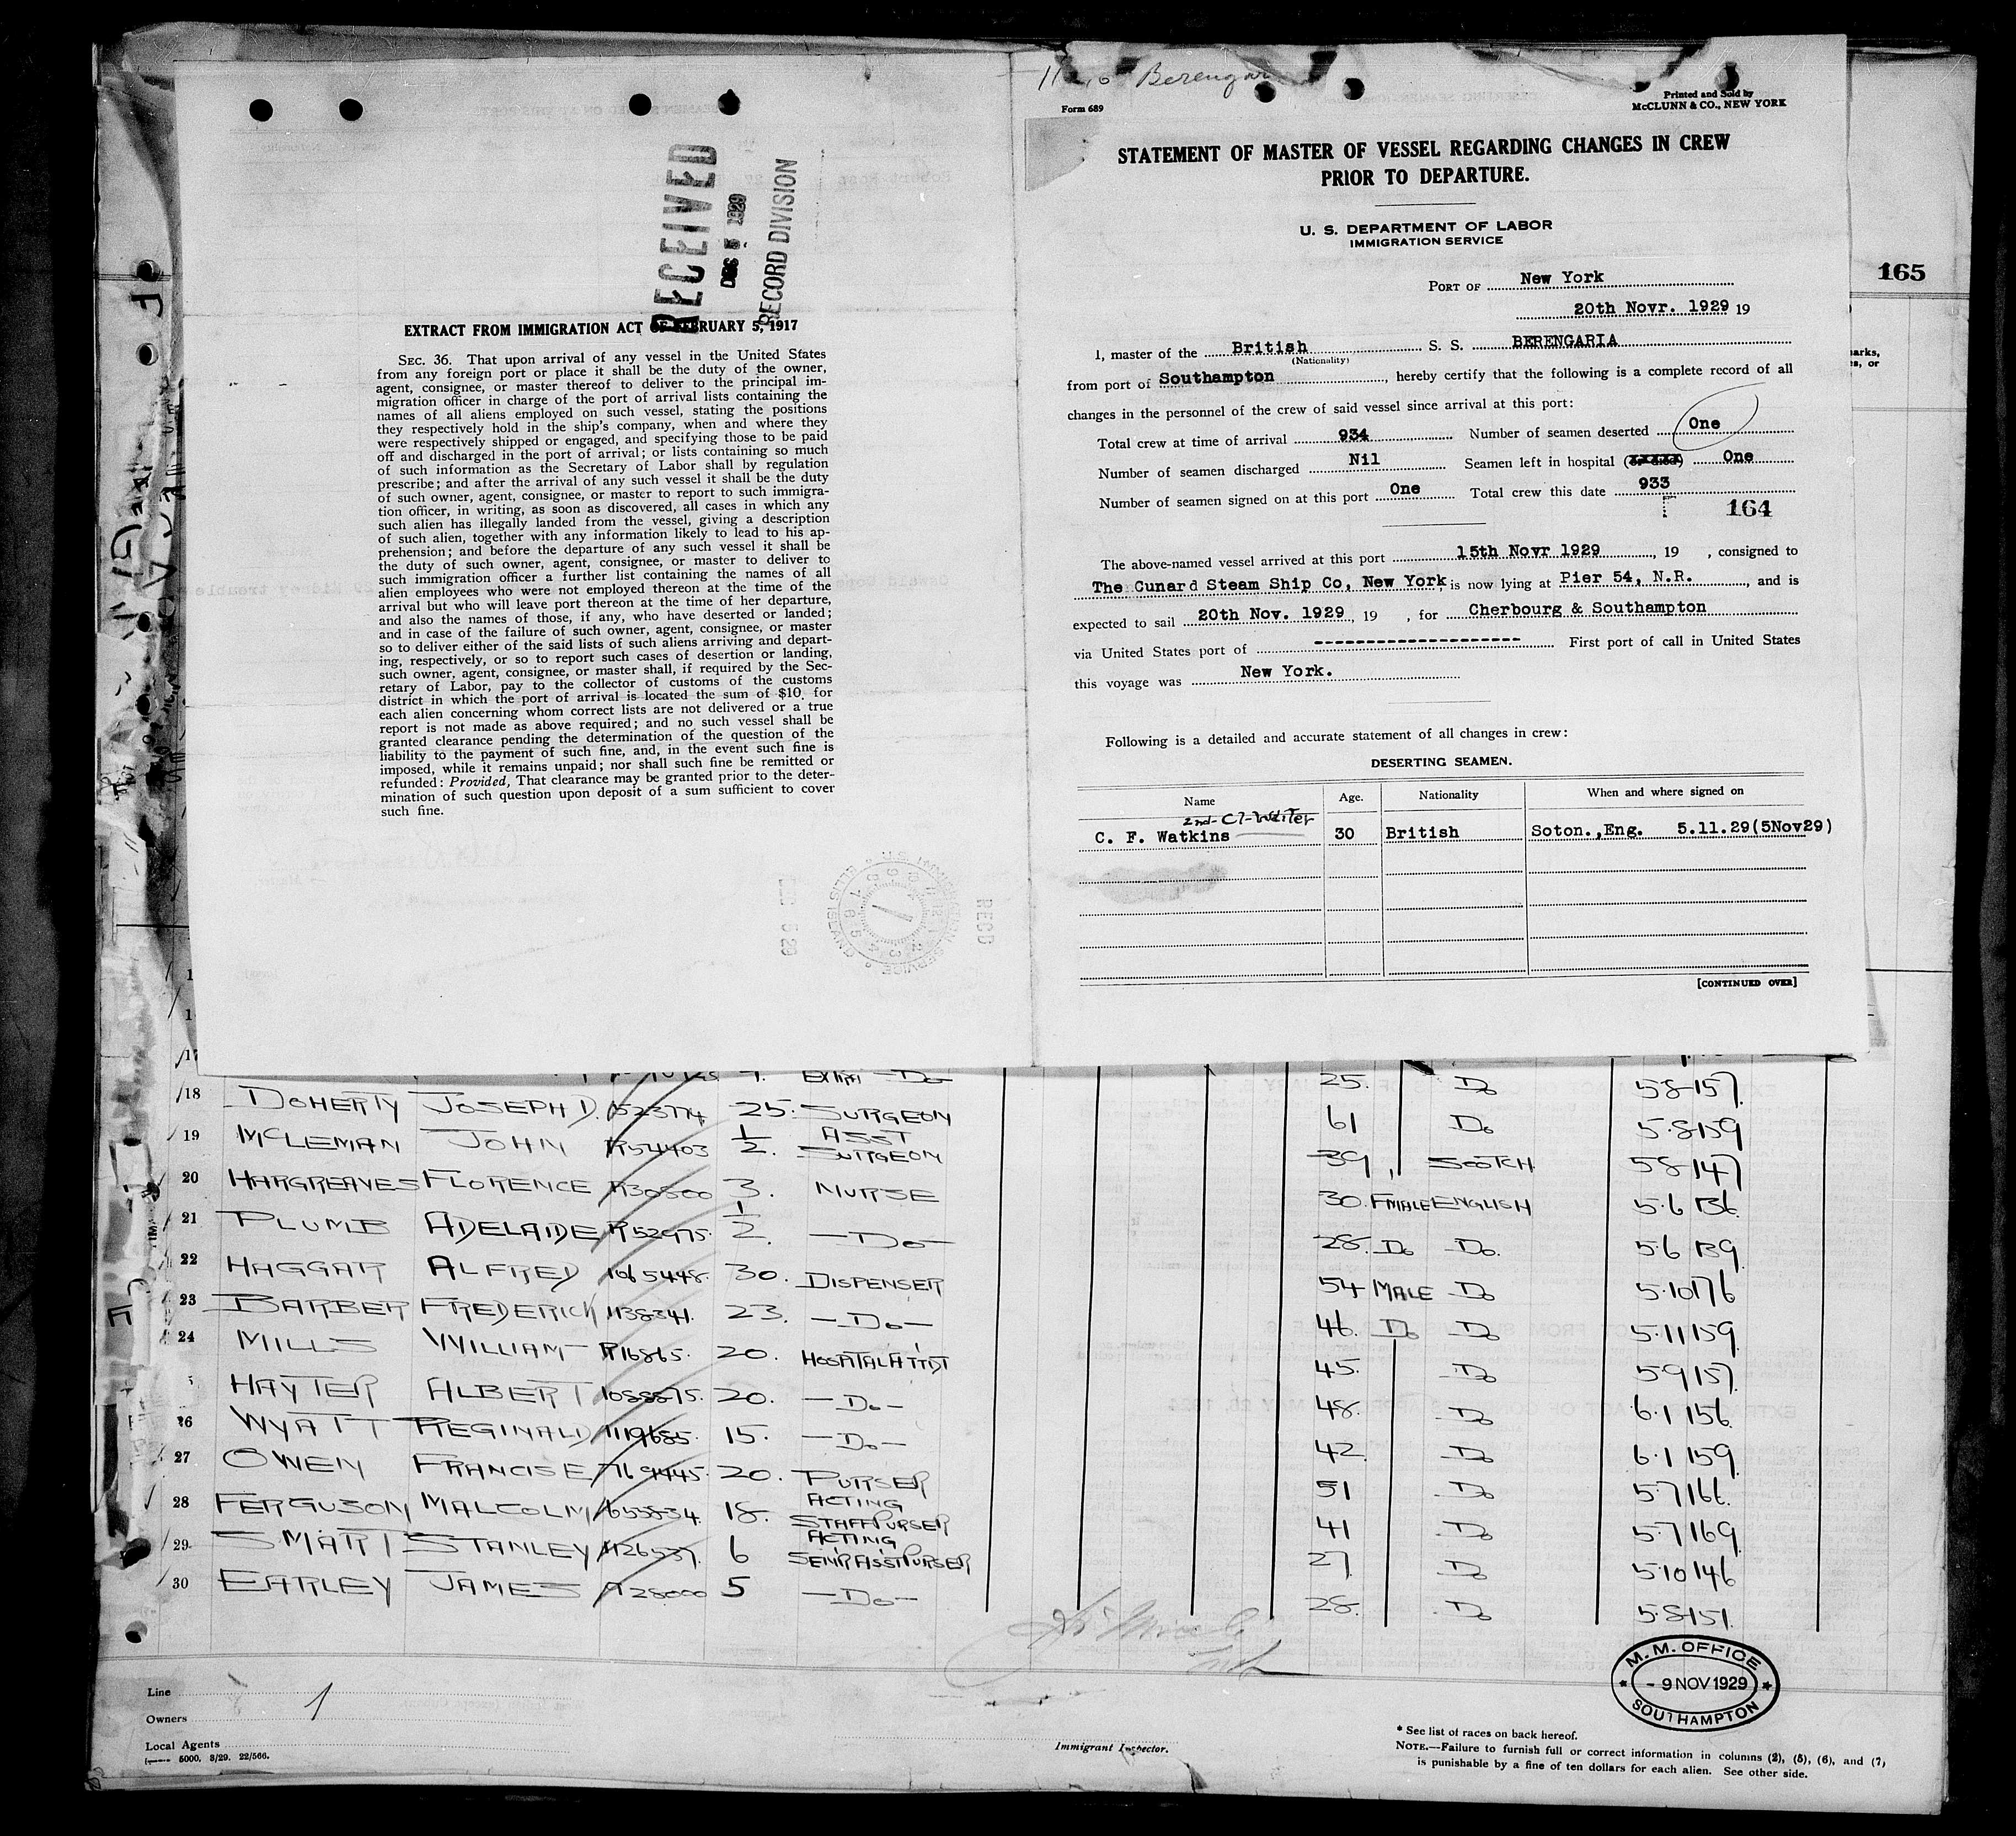 Berengar
Form 689
Printed and Sold by
McCLUNN & CO., NEW YORK
STATEMENT OF MASTER OF VESSEL REGARDING CHANGES IN CREW
PRIOR TO DEPARTURE.
U. S. DEPARTMENT OF LABOR
IMMIGRATION SERVICE
PORT OF New York
20th Novr. 1929 19
I, master of the British S. S. BERENGARIA
(Nationality)
from port of Southampton, hereby certify that the following is a complete record of all
changes in the personnel of the crew of said vessel since arrival at this port:
Total crew at time of arrival 934 Number of seamen deserted One
Number of seamen discharged Nil Seamen left in hospital (or died) One
Number of seamen signed on at this port One Total crew this date 933
164
The above-named vessel arrived at this port 15th Novr 1929, 19 , consigned to
The Cunard Steam Ship Co, New York, is now lying at Pier 54, N.R., and is
expected to sail 20th Nov. 1929, 19 , for Cherbourg & Southampton
via United States port of -------------------- First port of call in United States
this voyage was New York.
Following is a detailed and accurate statement of all changes in crew:
DESERTING SEAMEN.
Name Age. Nationality When and where signed on
2nd Cl-Waiter
C. F. Watkins 30 British Soton.,Eng. 5.11.29(5Nov29)
[CONTINUED OVER]
RECEIVED
DEC 5 1929
RECORD DIVISION
EXTRACT FROM IMMIGRATION ACT OF FEBRUARY 5, 1917
SEC. 36. That upon arrival of any vessel in the United States
from any foreign port or place it shall be the duty of the owner,
agent, consignee, or master thereof to deliver to the principal im-
migration officer in charge of the port of arrival lists containing the
names of all aliens employed on such vessel, stating the positions
they respectively hold in the ship's company, when and where they
were respectively shipped or engaged, and specifying those to be paid
off and discharged in the port of arrival; or lists containing so much
of such information as the Secretary of Labor shall by regulation
prescribe; and after the arrival of any such vessel it shall be the duty
of such owner, agent, consignee, or master to report to such immigra-
tion officer, in writing, as soon as discovered, all cases in which any
such alien has illegally landed from the vessel, giving a description
of such alien, together with any information likely to lead to his ap-
prehension; and before the departure of any such vessel it shall be
the duty of such owner, agent, consignee, or master to deliver to
such immigration officer a further list containing the names of all
alien employees who were not employed thereon at the time of the
arrival but who will leave port thereon at the time of her departure,
and also the names of those, if any, who have deserted or landed;
and in case of the failure of such owner, agent, consignee, or master
so to deliver either of the said lists of such aliens arriving and depart-
ing, respectively, or so to report such cases of desertion or landing,
such owner, agent, consignee, or master shall, if required by the Sec-
retary of Labor, pay to the collector of customs of the customs
district in which the port of arrival is located the sum of $10 for
each alien concerning whom correct lists are not delivered or a true
report is not made as above required; and no such vessel shall be
granted clearance pending the determination of the question of the
liability to the payment of such fine, and, in the event such fine is
imposed, while it remains unpaid; nor shall such fine be remitted or
refunded: Provided, That clearance may be granted prior to the deter-
mination of such question upon deposit of a sum sufficient to cover
such fine.
RECD
165
arks,
s, or
17 EXTRA -Do- 25. Do 5.8 157.
18 DOHERTY JOSEPH D. 25. SURGEON 61 Do 5.8 159
19 MCLEMAN JOHN R54403 1/2. ASST SURGEON 39 SCOTCH 5.8 147
20 HARGREAVES FLORENCE R30500 3. NURSE 30. FMALE ENGLISH 5.6 136.
21 PLUMB ADELAIDE R52975. 1/2. -Do- 28. Do Do. 5.6 139.
22 HAGGAR ALFRED 1065448. 30. DISPENSER 54 MALE Do 5.10 176
23 BARBER FREDERICK 1138341. 23. -Do- 46. Do Do 5.11 159.
24 MILLS WILLIAM R16865. 20. HOSPITAL ATTDT 45. Do 5.9 157.
HAYTER ALBERT 20. -Do- 48. Do 6.1 156.
26 WYATT REGINALD 1119685. 15. -Do- 42. Do 6.1 159.
27 OWEN FRANCIS E 769445. 20. PURSER 51 Do 5.7 166.
28 FERGUSON MALCOLM 655834. 18. ACTING STAFF PURSER 41 Do 5.7 169.
29 SMART STANLEY 1126537. 6 ACTING SENR ASST PURSER 27. Do 5.10 146
30 EARLEY JAMES R28000 5 -Do- 28. Do 5.8 151.
M. M. OFFICE
- 9 NOV 1929
SOUTHAMPTON
Line
Owners 1
Local Agents
5000. 3/29. 22/566.
Immigrant Inspector.
* See list of races on back hereof.
NOTE.—Failure to furnish full or correct information in columns (2), (5), (6), and (7,
is punishable by a fine of ten dollars for each alien. See other side.